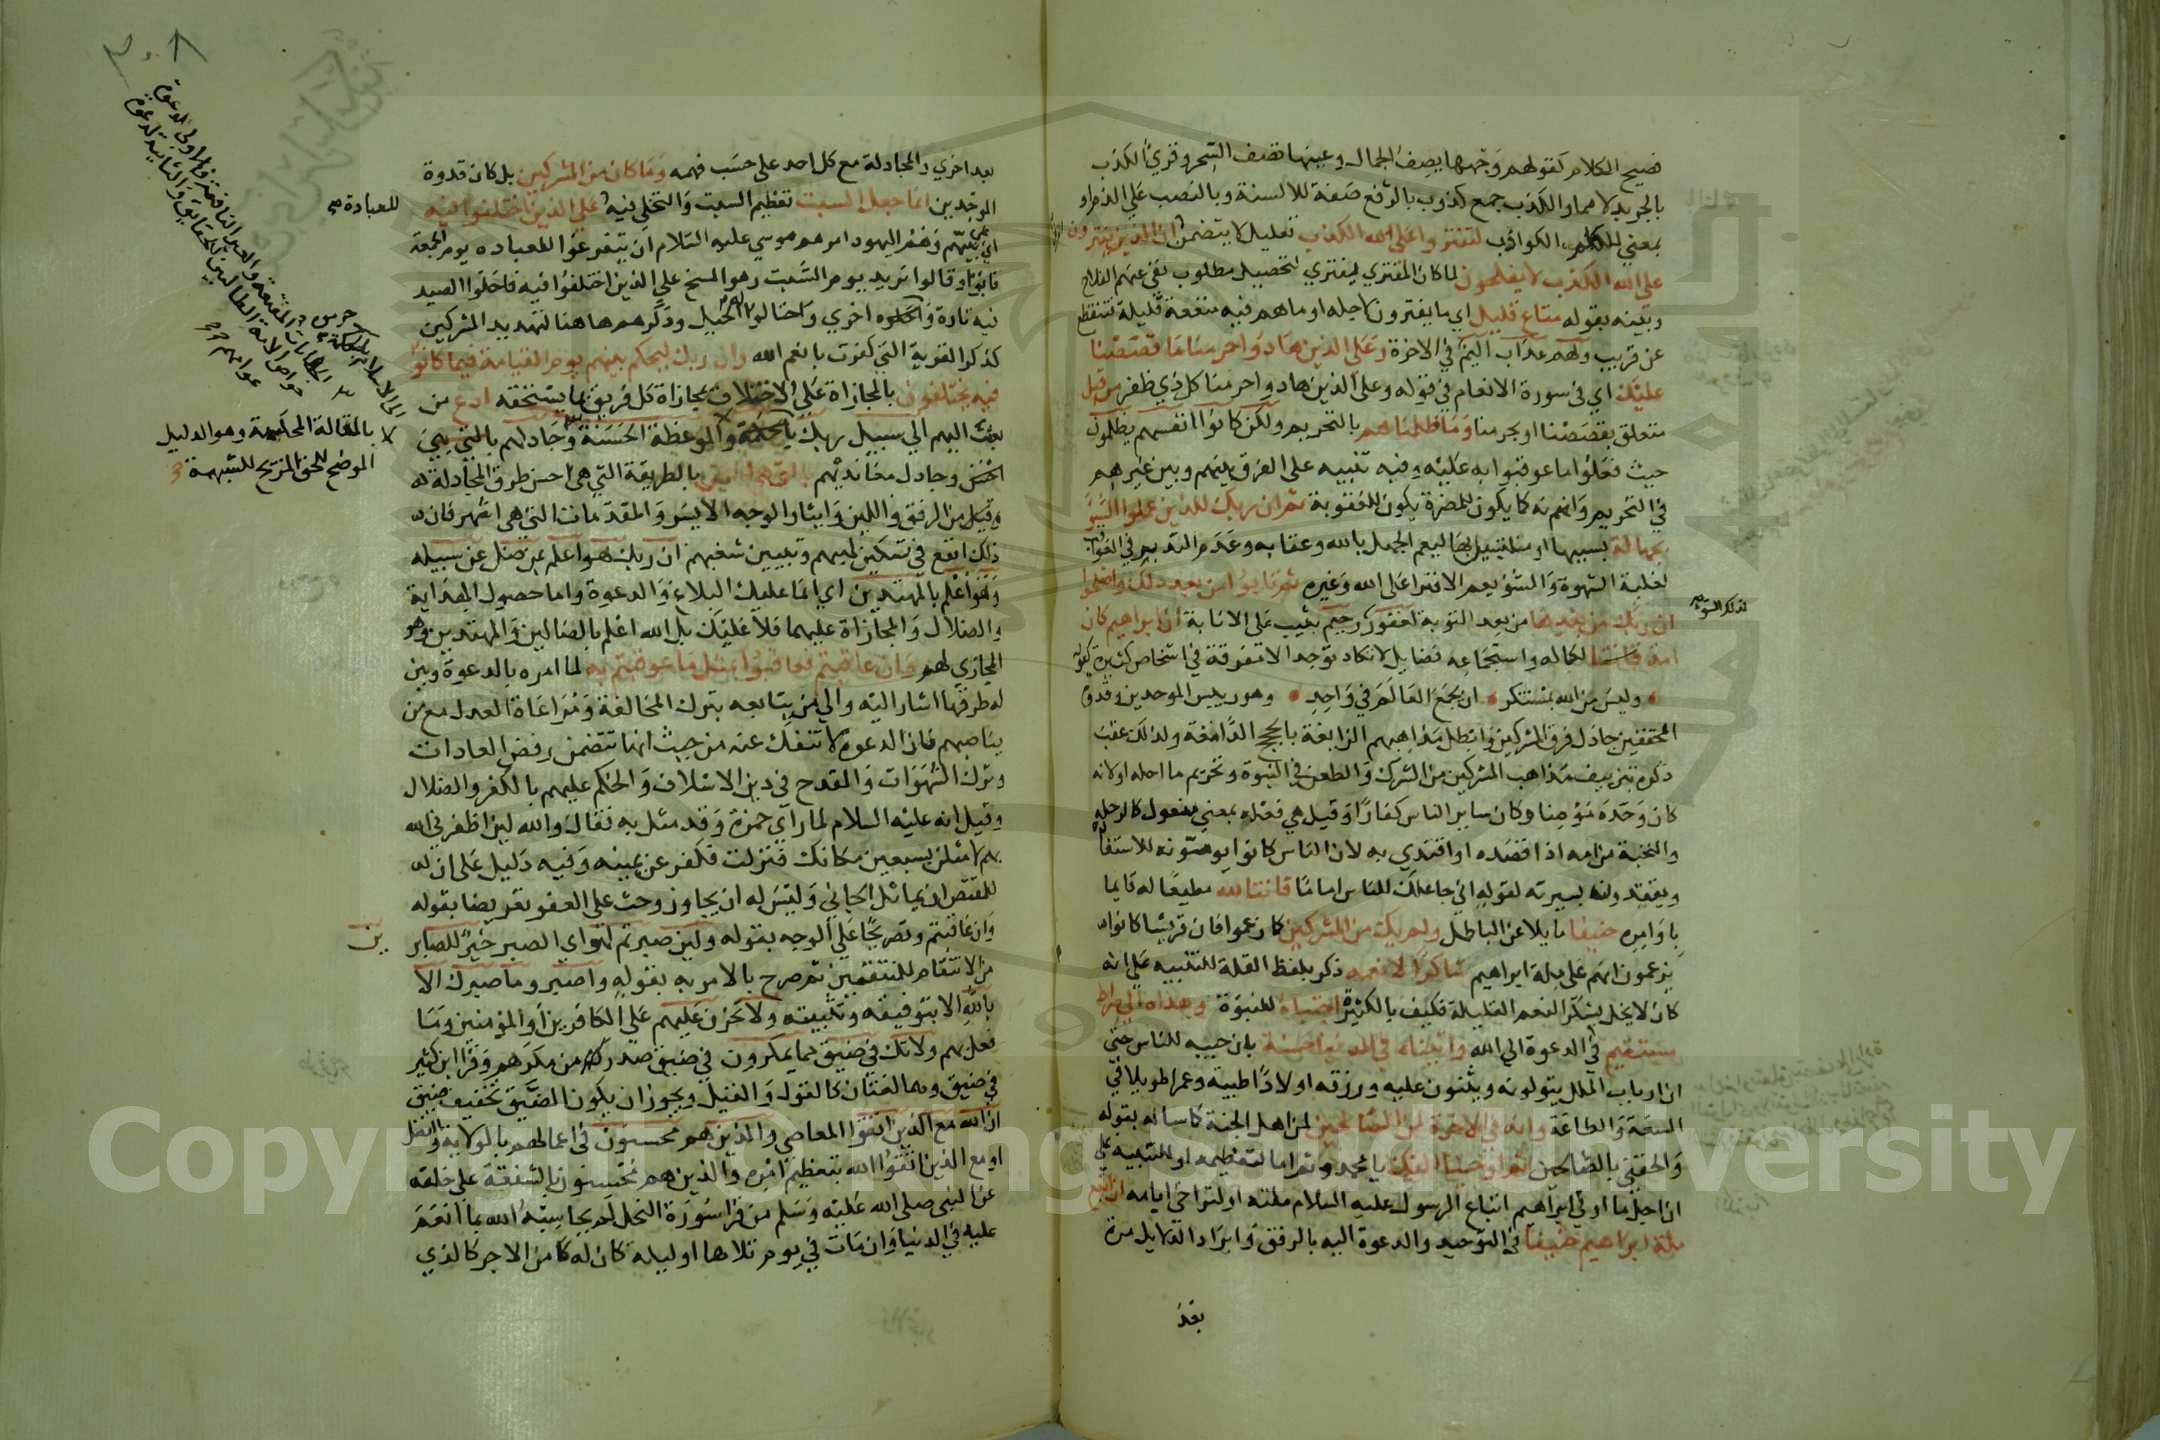 فصيح الكلام كقولهم وجهها يصف الجمال وعينها تصف السحر وقرئ الكذب
بالجر بدلا مما والكذب جمع كذوب بالرفع صفة للالسنة وبالنصب على الذم او
بمعني الكلم الكواذب لتفتروا على الله الكذب تعليل لا يتضمن ان الذين يفترون
على الله الكذب لا يفلحون لما كان المفتري ليفتري لتحصيل مطلوب نفي عنهم الفلاح
وبينه بقوله متاع قليل اي ما يفترون لاجله او ما هم فيه منفعة قليلة تنقطع
عن قريب ولهم عذاب اليم في الاخرة وعلى الذين هادوا حرمنا ما قصصنا
عليك اي في سورة الانعام في قوله وعلى الذين هادوا حرمنا كل ذي ظفر من قبل
متعلق بقصصنا او بحرمنا وما ظلمناهم بالتحريم ولكن كانوا انفسهم يظلمون
حيث فعلوا ما عوقبوا به عليه وفيه تنبيه على الفرق بينهم وبين غيرهم
في التحريم وانهم كما يكون للمضرة يكون للعقوبة ثم ان ربك للذين عملوا السوء
بجهالة بسببها او متلبسين بها ليعم الجهل بالله وعقابه وعدم التدبر في العواقب
لغلبة الشهوة والسوء يعم الافترا على الله وغيره ثم تابوا من بعد ذلك واصلحوا
ان ربك من بعدها من بعد التوبة لغفور رحيم يثيب على الانابة ان ابراهيم كان
امة قانتا لكماله واستجماعه فضايل لا تكاد توجد الا متفرقة في اشخاص كثيرة كقوله
وليس من الله بمستنكر ان يجمع العالم في واحد وهو رييس الموحدين وقدوة
المحققين جادل فرق المشركين وابطل مذاهبهم الزايغة بالحجج الدامغة ولذلك عقب
ذكره بتزييف مذاهب المشركين من الشرك والطعن في النبوة وتحريم ما احله او لانه
كان وحده مؤمنا وكان ساير الناس كفارا وقيل هي فعلة بمعني مفعول كالرحلة
والنخبة من امه اذا قصده او اقتدي به لان الناس كانوا يومونه للاستفا
ويقتدون بسيرته لقوله اني جاعلك للناس اماما قانتا لله مطيعا له قايما
باوامره حنيفا مايلا عن الباطل ولم يك من المشركين كما زعموا فان قريشا كانوا
يزعمون انهم على ملة ابراهيم شاكرا لانعمه ذكر بلفظ القلة للتنبيه على انه
كان لا يخل بشكر النعم القليلة فكيف بالكثيرة اجتباه للنبوة وهداه الى صراط
مستقيم في الدعوة الى الله واتيناه في الدنيا حسنة بان حببه للناس حتى
ان ارباب الملل يتولونه ويثنون عليه ورزقه اولادا طيبة وعمرا طويلا في
السعة والطاعة وانه في الاخرة لمن الصالحين لمن اهل الجنة كما ساله بقوله
والحقني بالصالحين ثم اوحينا اليك يا محمد وثم اما لتعظيمه او للتنبيه على
ان اجل ما اوتي ابراهيم اتباع الرسول عليه السلام ملته او لتراخي ايامه ان اتبع
ملة ابراهيم حنيفا في التوحيد والدعوة اليه بالرفق وايراد الدلايل مرة
بعد
لذلك السوء صح
٣٠٨
بعد اخري والمجادلة مع كل احد على حسب فهمه وما كان من المشركين بل كان قدوة
الموحدين انما جعل السبت تعظيم السبت والتخلي فيه على الذين اختلفوا فيه
اي على نبيهم وهم اليهود امرهم موسي عليه السلام ان يتفرغوا للعباده يوم الجمعة
فابوا وقالوا نريد يوم السبت وهو المسخ على الذين اختلفوا فيه فاحلوا الصيد
فيه تارة وحرموه اخري واحتالوا لهم الحيل وذكرهم هاهنا لتهديد المشركين
كذكر القرية التي كفرت بانعم الله وان ربك ليحكم بينهم يوم القيامة فيما كانوا
فيه يختلفون بالمجازاة على الاختلاف بمجازاة كل فريق بما يستحقه ادع من
بعثت اليهم الي سبيل ربك بالحكمة والموعظة الحسنة وجادلهم بالتي هي
احسن وجادل معانديهم بالتي هي احسن بالطريقة التي هي احسن طرق المجادلة
وقيل من الرفق واللين وايثار الوجه الايسر والمقدمات التي هي اشهر فان
ذلك انفع في تسكين لهبهم وتبيين شغبهم ان ربك هو اعلم بمن ضل عن سبيله
وهو اعلم بالمهتدين اي انما عليك البلاغ والدعوة واما حصول الهداية
والضلال والمجازاة عليهما فلا عليك بل الله اعلم بالضالين والمهتدين وهو
المجازي لهم وان عاقبتم فعاقبوا بمثل ما عوقبتم به لما امره بالدعوة وبين
له طرقها اشار اليه والي من يتابعه بترك المخالفة ومراعاة العدل مع من
يناصبهم فان الدعوة لا تنفك عنه من حيث انها تتضمن رفض العادات
وترك الشهوات والقدح في دين الاسلاف والحكم عليهم بالكفر والضلال
وقيل انه عليه السلام لما راي حمزة وقد مثل به فقال والله لين اظفرني الله
بهم لامثلن بسبعين مكانك فنزلت فكفر عن يمينه وفيه دليل على ان له
للمقتص ان يماثل الجاني وليس له ان يجاوز وحث على العفو تعريضا بقوله
وان عاقبتم وتصريحا على الوجه بقوله ولين صبرتم لهو اي الصبر خير للصابر
ين
من الانتقام للمنتقمين ثم صرح بالامر به بقوله واصبر وما صبرك الا
بالله الا بتوفيقه وتثبيته ولا تحزن عليهم على الكافرين او المؤمنين وما
فعل بهم ولا تك في ضيق مما يمكرون في ضيق صدر من مكرهم وقرا ابن كثير
في ضيق وهما لغتان كالقول والقيل ويجوز ان يكون الضيق تخفيف ضيق
ان الله مع الذين اتقوا المعاصي والذين هم محسنون في اعمالهم بالولاية والفضل
او مع الذين اتقوا الله بتعظيم امره والذين هم محسنون بالشفقة على خلقه
عن النبي صلى الله عليه وسلم من قرا سورة النحل لم يحاسبه الله بما انعم
عليه في الدنيا وان مات في يوم تلاها او ليلة كان له من الاجر كالذي
للعبادة صح
بالمقالة المحكمة وهو الدليل
الموضح للحق المزيح للشبهة
الخطابات المقنعة والعبر النافعة فالاولى لدعوة
خواص الامة الطالبين للحقايق والثانية لدعوة
عوامهم
Copyright © King Saud University